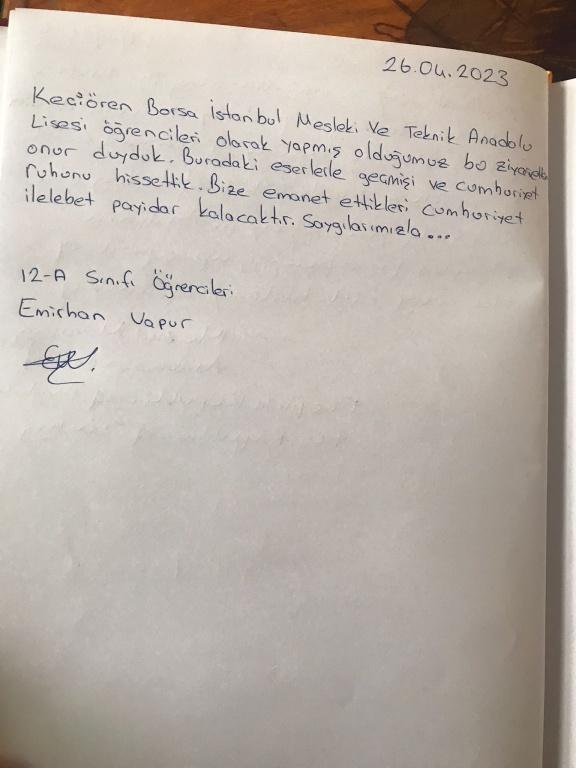 26.04.2023
Keçiören Borsa İstanbul Mesleki Ve Teknik Anadolu
Lisesi öğrencileri olarak yapmış olduğumuz bu ziyaretten
onur duyduk. Buradaki eserlerle geçmişi ve cumhuriyet
ruhunu hissettik. Bize emanet ettikleri cumhuriyet
ilelebet payidar kalacaktır. Saygılarımızla...
12-A Sınıfı Öğrencileri
Emirhan Vapur